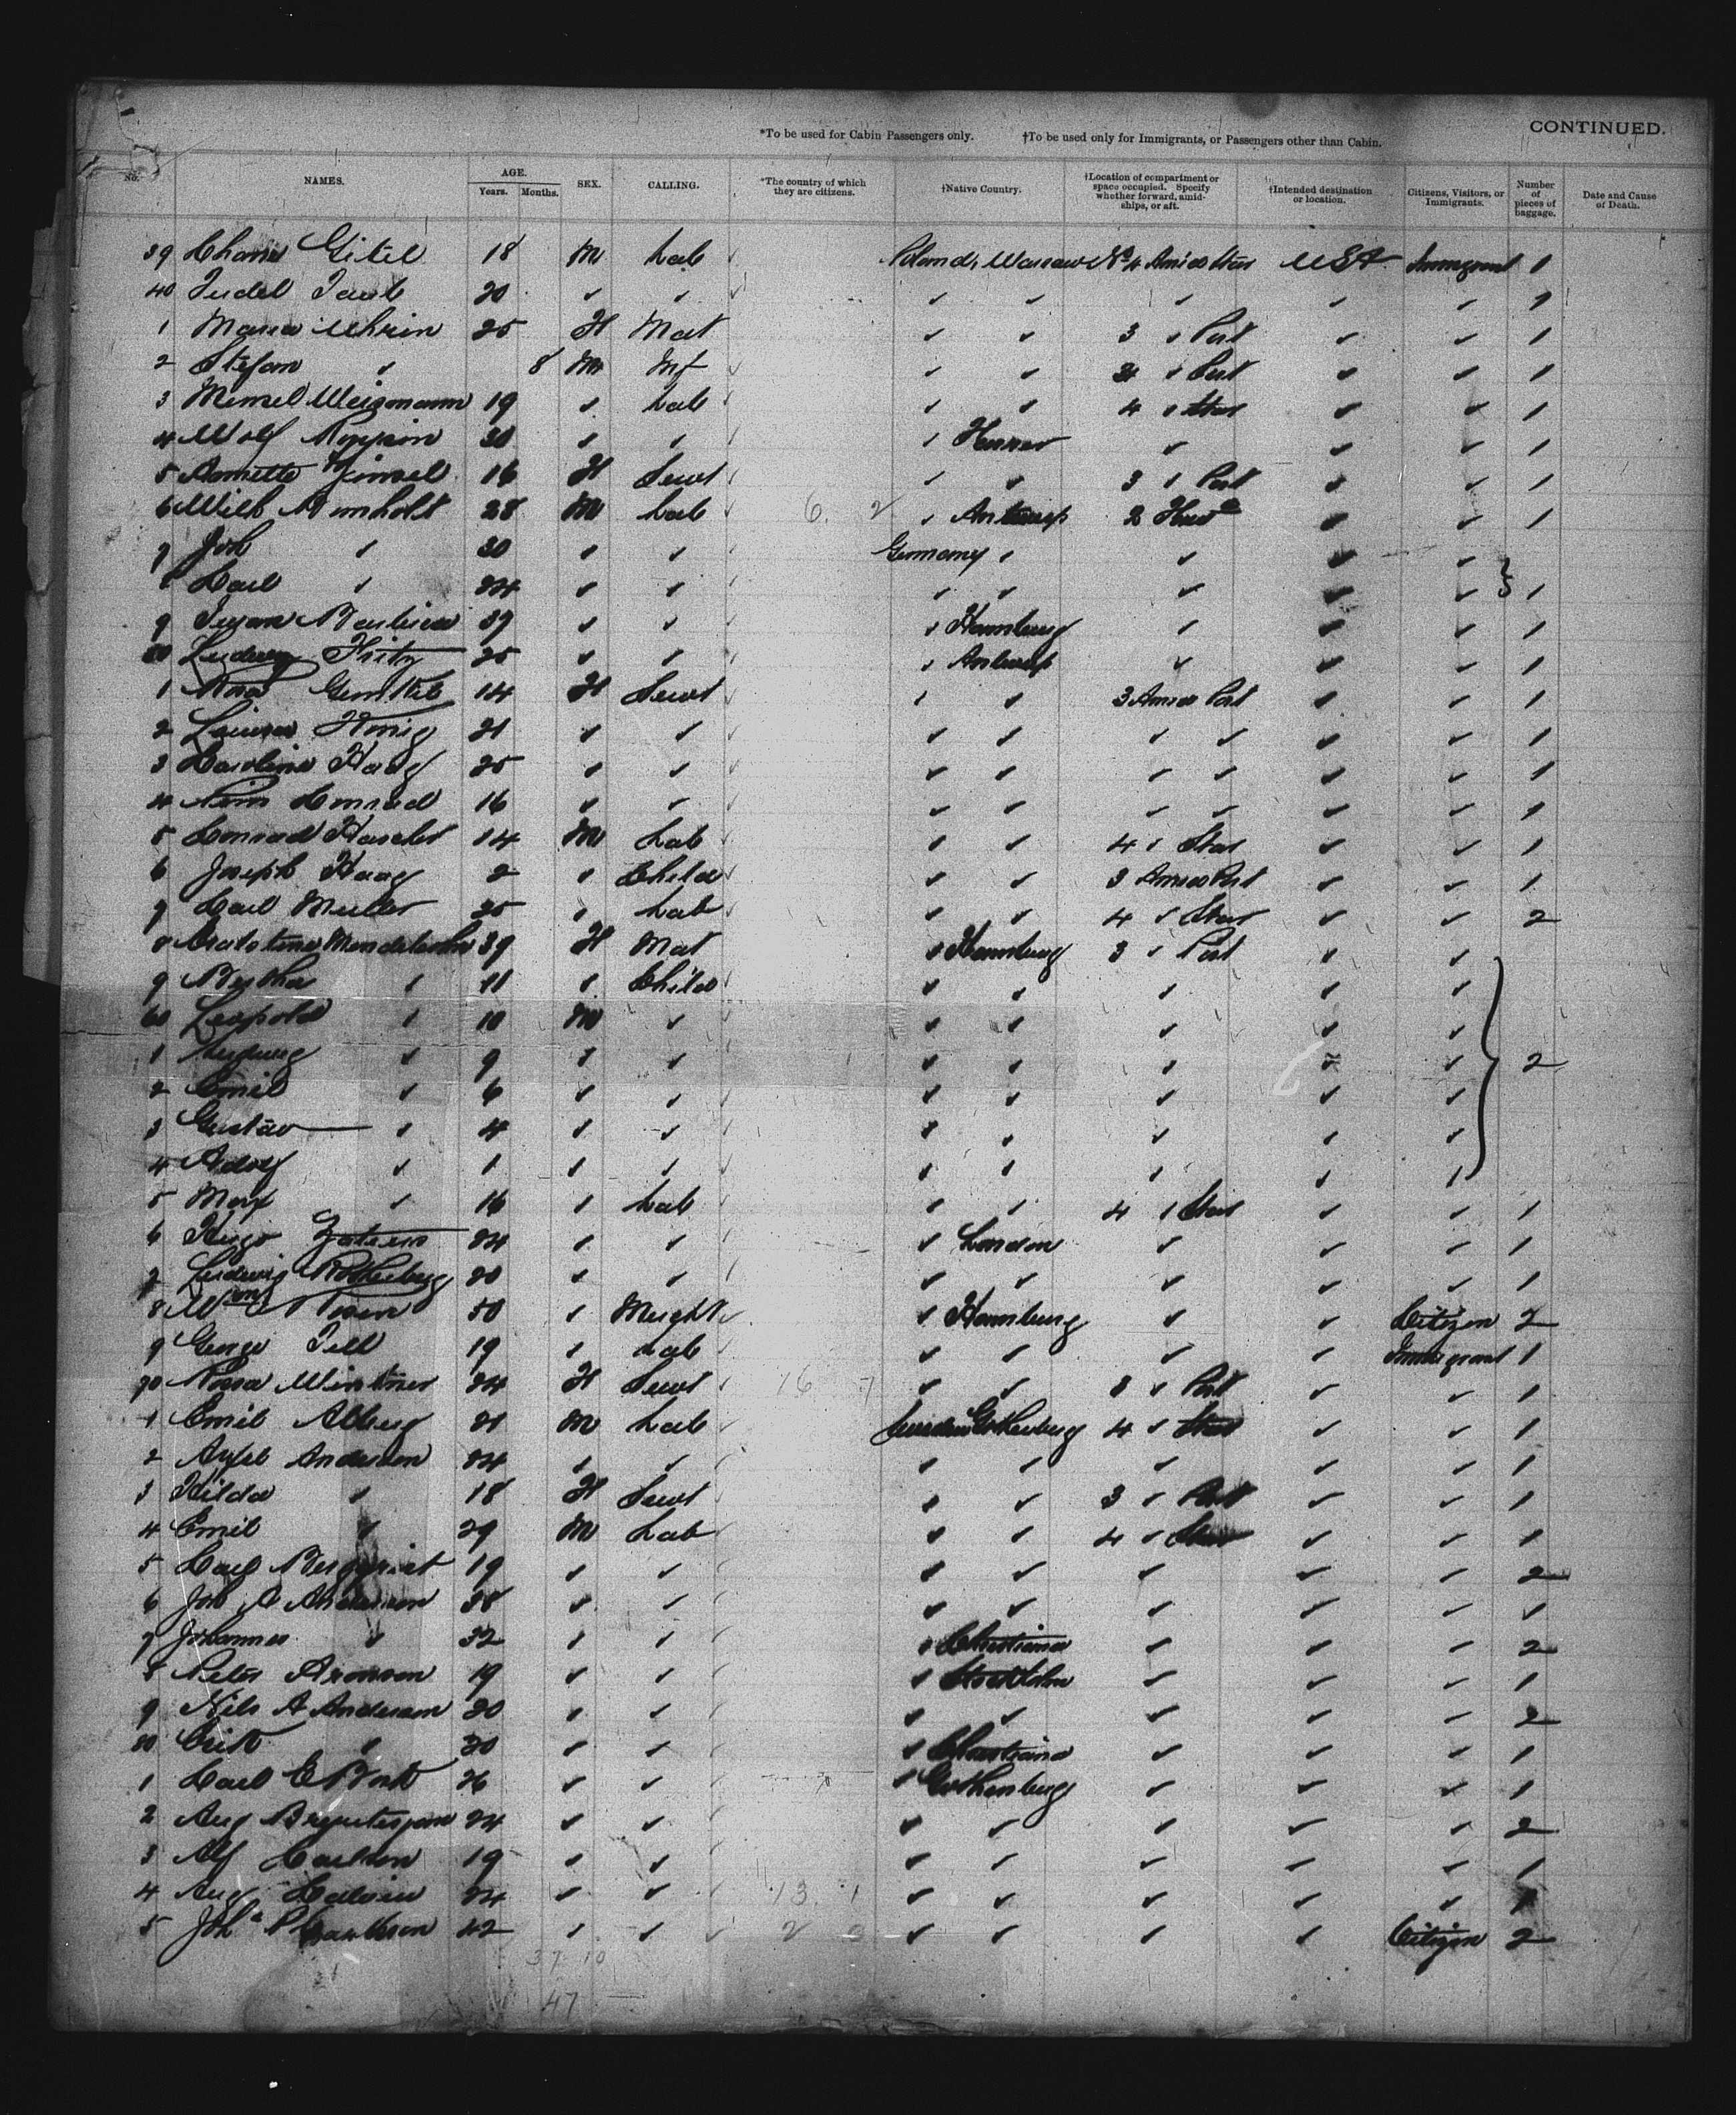 CONTINUED.
*To be used for Cabin Passengers only. †To be used only for Immigrants, or Passengers other than Cabin.
No. NAMES. AGE. Years. Months. SEX. CALLING. *The country of which they are citizens. †Native Country. †Location of compartment or space occupied. Specify whether forward, amidships, or aft. †Intended destination or location. Citizens, Visitors, or Immigrants. Number of pieces of baggage. Date and Cause of Death.
39 Gitel 18 M Lab Poland, Warsaw No 4 Amids Star USA Immigrant 1
40 20 ✓ ✓ ✓ ✓ ✓ ✓ ✓ 1
1 Maria 25 F Mat ✓ ✓ 3 ✓ Port ✓ ✓ 1
2 Stefan ✓ 8 M Inf ✓ ✓ ✓ Port ✓ ✓ 1
3 Weismann 19 ✓ Lab ✓ ✓ 4 ✓ Star ✓ ✓ 1
4 Wolf 30 ✓ ✓ ✓ ✓ ✓ ✓ 1
5 16 F Servt ✓ ✓ 3 ✓ Port ✓ ✓ 1
6 Wilh 28 M Lab 6. 2 ✓ Antwerp 2 ✓ ✓ 1
7 Joh ✓ 30 ✓ ✓ Germany ✓ ✓ ✓ ✓
8 Carl ✓ 24 ✓ ✓ ✓ ✓ ✓ ✓ ✓ 1
9 39 ✓ ✓ ✓ Hamburg ✓ ✓ ✓ 1
50 Ludwig Fritz 25 ✓ ✓ ✓ Antwerp ✓ ✓ ✓ 1
1 Rosa 14 F Servt ✓ ✓ 3 Amids Port ✓ ✓ 1
2 Louisa König 21 ✓ ✓ ✓ ✓ ✓ ✓ ✓ ✓ 1
3 Carolina Haag 25 ✓ ✓ ✓ ✓ ✓ ✓ ✓ ✓ 1
4 Conrad 16 ✓ ✓ ✓ ✓ ✓ ✓ ✓ ✓ 1
5 Conrad 14 M Lab ✓ ✓ 4 ✓ Star ✓ ✓ 1
6 Joseph Haag 2 ✓ Child ✓ ✓ 3 Amids Port ✓ ✓ 1
7 Carl Muller ✓ Lab ✓ ✓ 4 ✓ Star ✓ ✓ 2
8 Mendelsohn 39 F Mat ✓ Hamburg 3 ✓ Port ✓ ✓
9 Bertha ✓ 11 ✓ Child ✓ ✓ ✓ ✓ ✓
60 Leopold ✓ 10 M ✓ ✓ ✓ ✓ ✓ ✓
1 Ludwig ✓ 9 ✓ ✓ ✓ ✓ ✓ ✓ ✓ 2
2 Emil ✓ 6 ✓ ✓ ✓ ✓ ✓ ✓ ✓
3 Gustav ✓ 4 ✓ ✓ ✓ ✓ ✓ ✓ ✓
4 Adolf ✓ 1 ✓ ✓ ✓ ✓ ✓ ✓ ✓
5 Max ✓ 16 ✓ Lab ✓ ✓ 4 ✓ Star ✓ ✓ 1
6 Hugo 24 ✓ ✓ ✓ London ✓ ✓ ✓ 1
7 Ludwig Rothenberg 20 ✓ ✓ ✓ ✓ ✓ ✓ ✓ 1
8 Wm 50 ✓ Mercht ✓ Hamburg ✓ ✓ Citizen 2
9 George 19 ✓ Lab ✓ ✓ ✓ ✓ Immigrant 1
70 Rosa 24 F Servt 16 7 ✓ ✓ 3 ✓ Port ✓ ✓ 1
1 Emil Alberg 21 M Lab Sweden Gothenburg 4 ✓ Star ✓ ✓ 1
2 Axel Anderson 24 ✓ ✓ ✓ ✓ ✓ ✓ ✓ 1
3 Hilda ✓ 18 F Servt ✓ ✓ 3 ✓ Port ✓ ✓ 1
4 Emil ✓ 29 M Lab ✓ ✓ 4 ✓ Star ✓ ✓ 1
5 Carl Bergquist 19 ✓ ✓ ✓ ✓ ✓ ✓ ✓ 2
6 Joh A Anderson 38 ✓ ✓ ✓ ✓ ✓ ✓ ✓ 1
7 Johannes ✓ 32 ✓ ✓ ✓ Christiania ✓ ✓ ✓ 2
8 Peter Aronson 19 ✓ ✓ ✓ Stockholm ✓ ✓ ✓ 1
9 Nils A Anderson 20 ✓ ✓ ✓ ✓ ✓ ✓ ✓ 2
80 Erik ✓ 20 ✓ ✓ ✓ Christiania ✓ ✓ ✓ 1
1 Carl E 26 ✓ ✓ ✓ Gothenburg ✓ ✓ ✓ 1
2 Aug 24 ✓ ✓ ✓ ✓ ✓ ✓ ✓ 2
3 Alf Carlson 19 ✓ ✓ ✓ ✓ ✓ ✓ ✓ 1
4 Aug 24 ✓ ✓ 13 1 ✓ ✓ ✓ ✓ ✓ 1
5 Joh 42 ✓ ✓ 2 ✓ ✓ ✓ ✓ Citizen 2
37 10
47